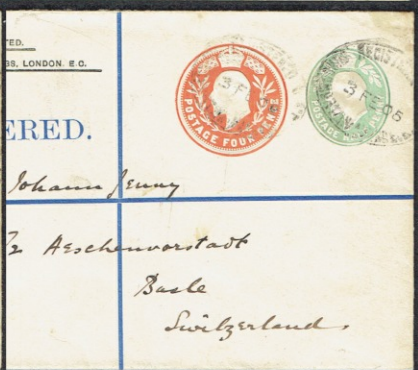 TED.
BS, LONDON. E.C.
POSTAGE FOUR PENCE
ERED.
3 FE 05
Johann Jenny
/2 Aeschenvorstadt
Basle
Switzerland.